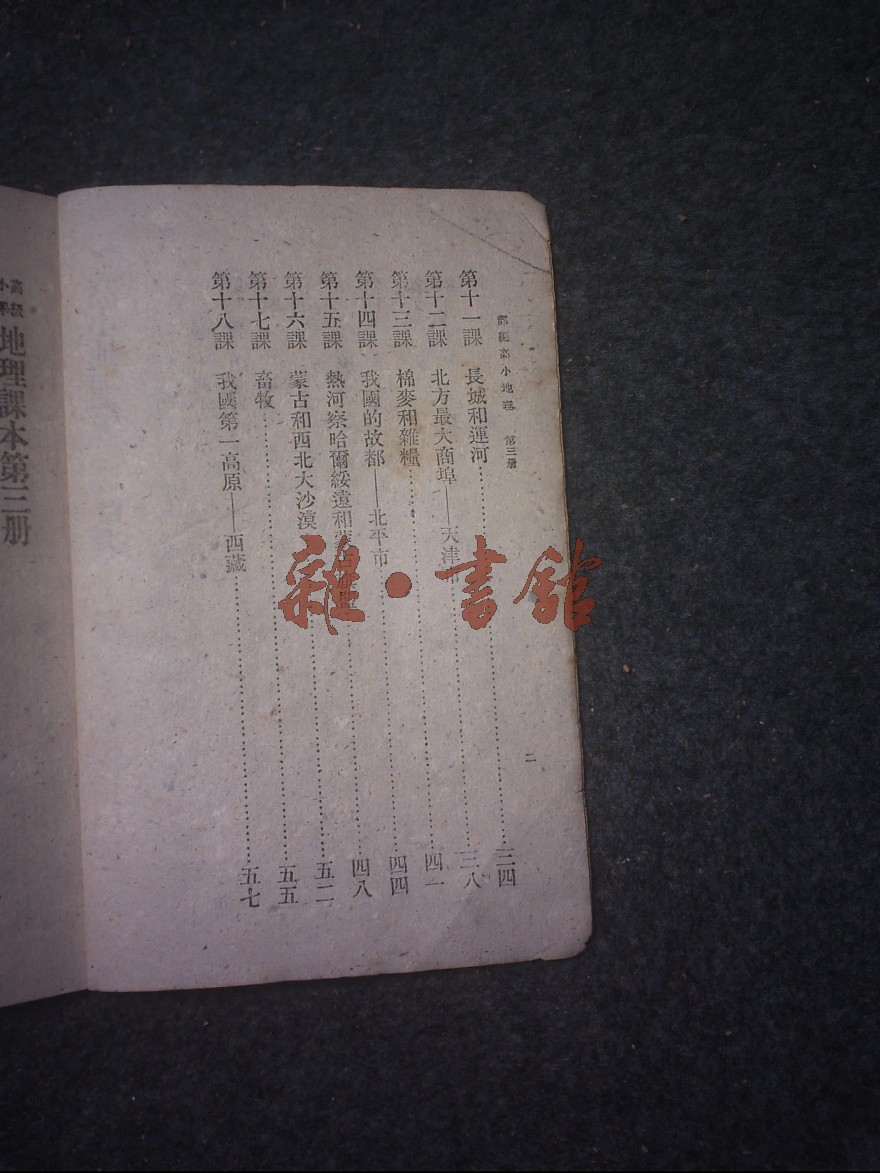 部編高小地理　第三册
第十一課　長城和運河……三四
第十二課　北方最大商埠——天津市……三八
第十三課　棉麥和雜糧……四一
第十四課　我國的故都——北平市……四四
第十五課　熱河察哈爾綏遠和蒙古……四八
第十六課　蒙古和西北大沙漠……五二
第十七課　畜牧……五五
第十八課　我國第一高原——西藏……五七
二
地理課本第三册
雜·書館